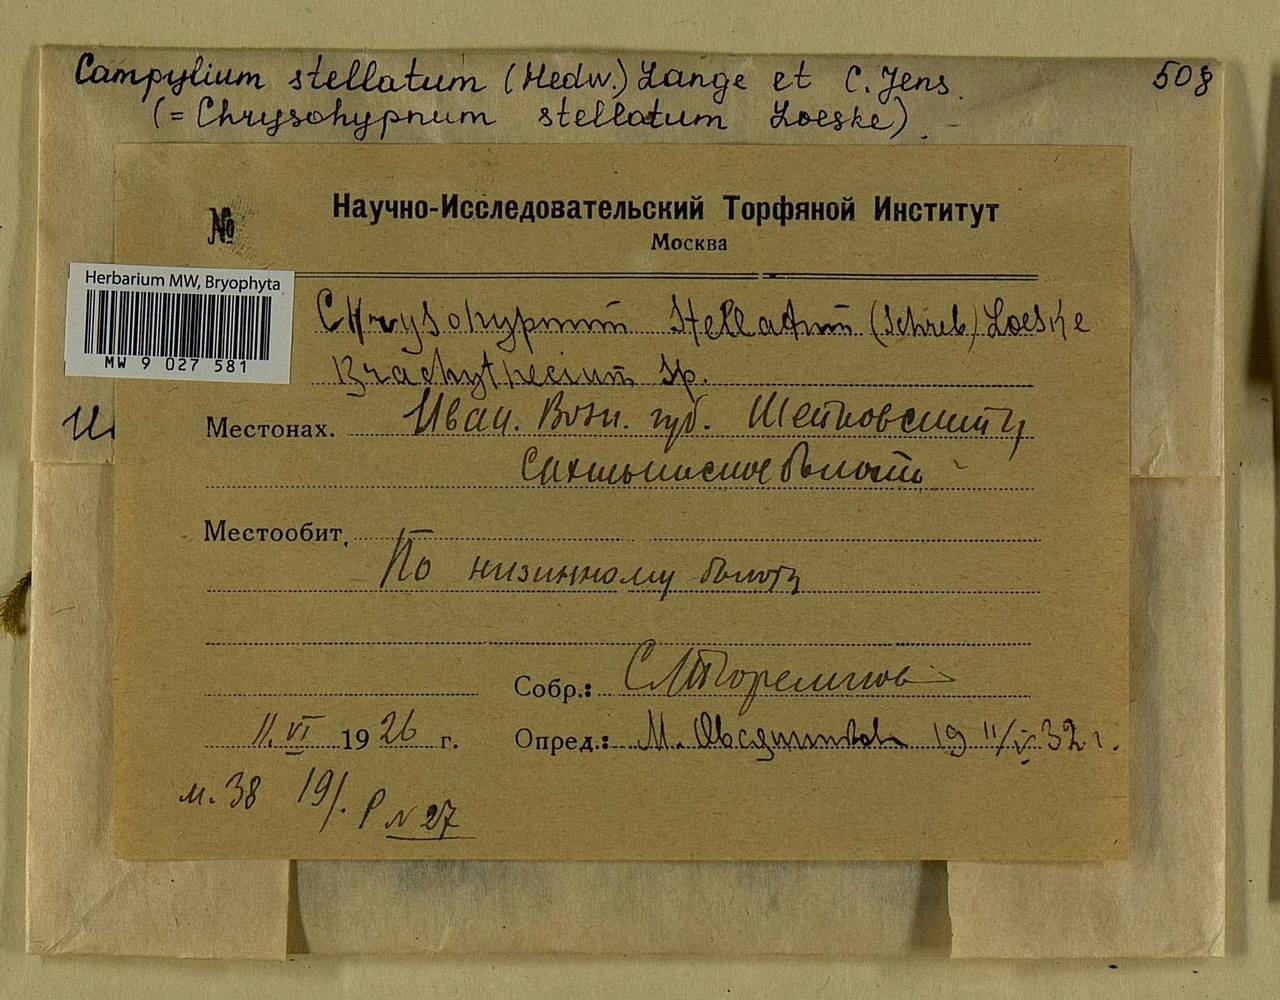 Campylium stellatum (Hedw.) Lange et C. Jens. 508
(= Chrysohypnum stellatum Loeske)
№
Научно-Исследовательский Торфяной Институт
Москва
Herbarium MW, Bryophyta
MW 9 027 581
Chrysohypnum stellatum (Schreb) Loeske
Brachythecium sp.
Местонах. Иван. Возн. губ.
болото
Местообит. По низинному болоту
Собр.:
11.VI 1926 г. Опред.: 19 11/V 32 г.
м. 38 19/. Р № 27